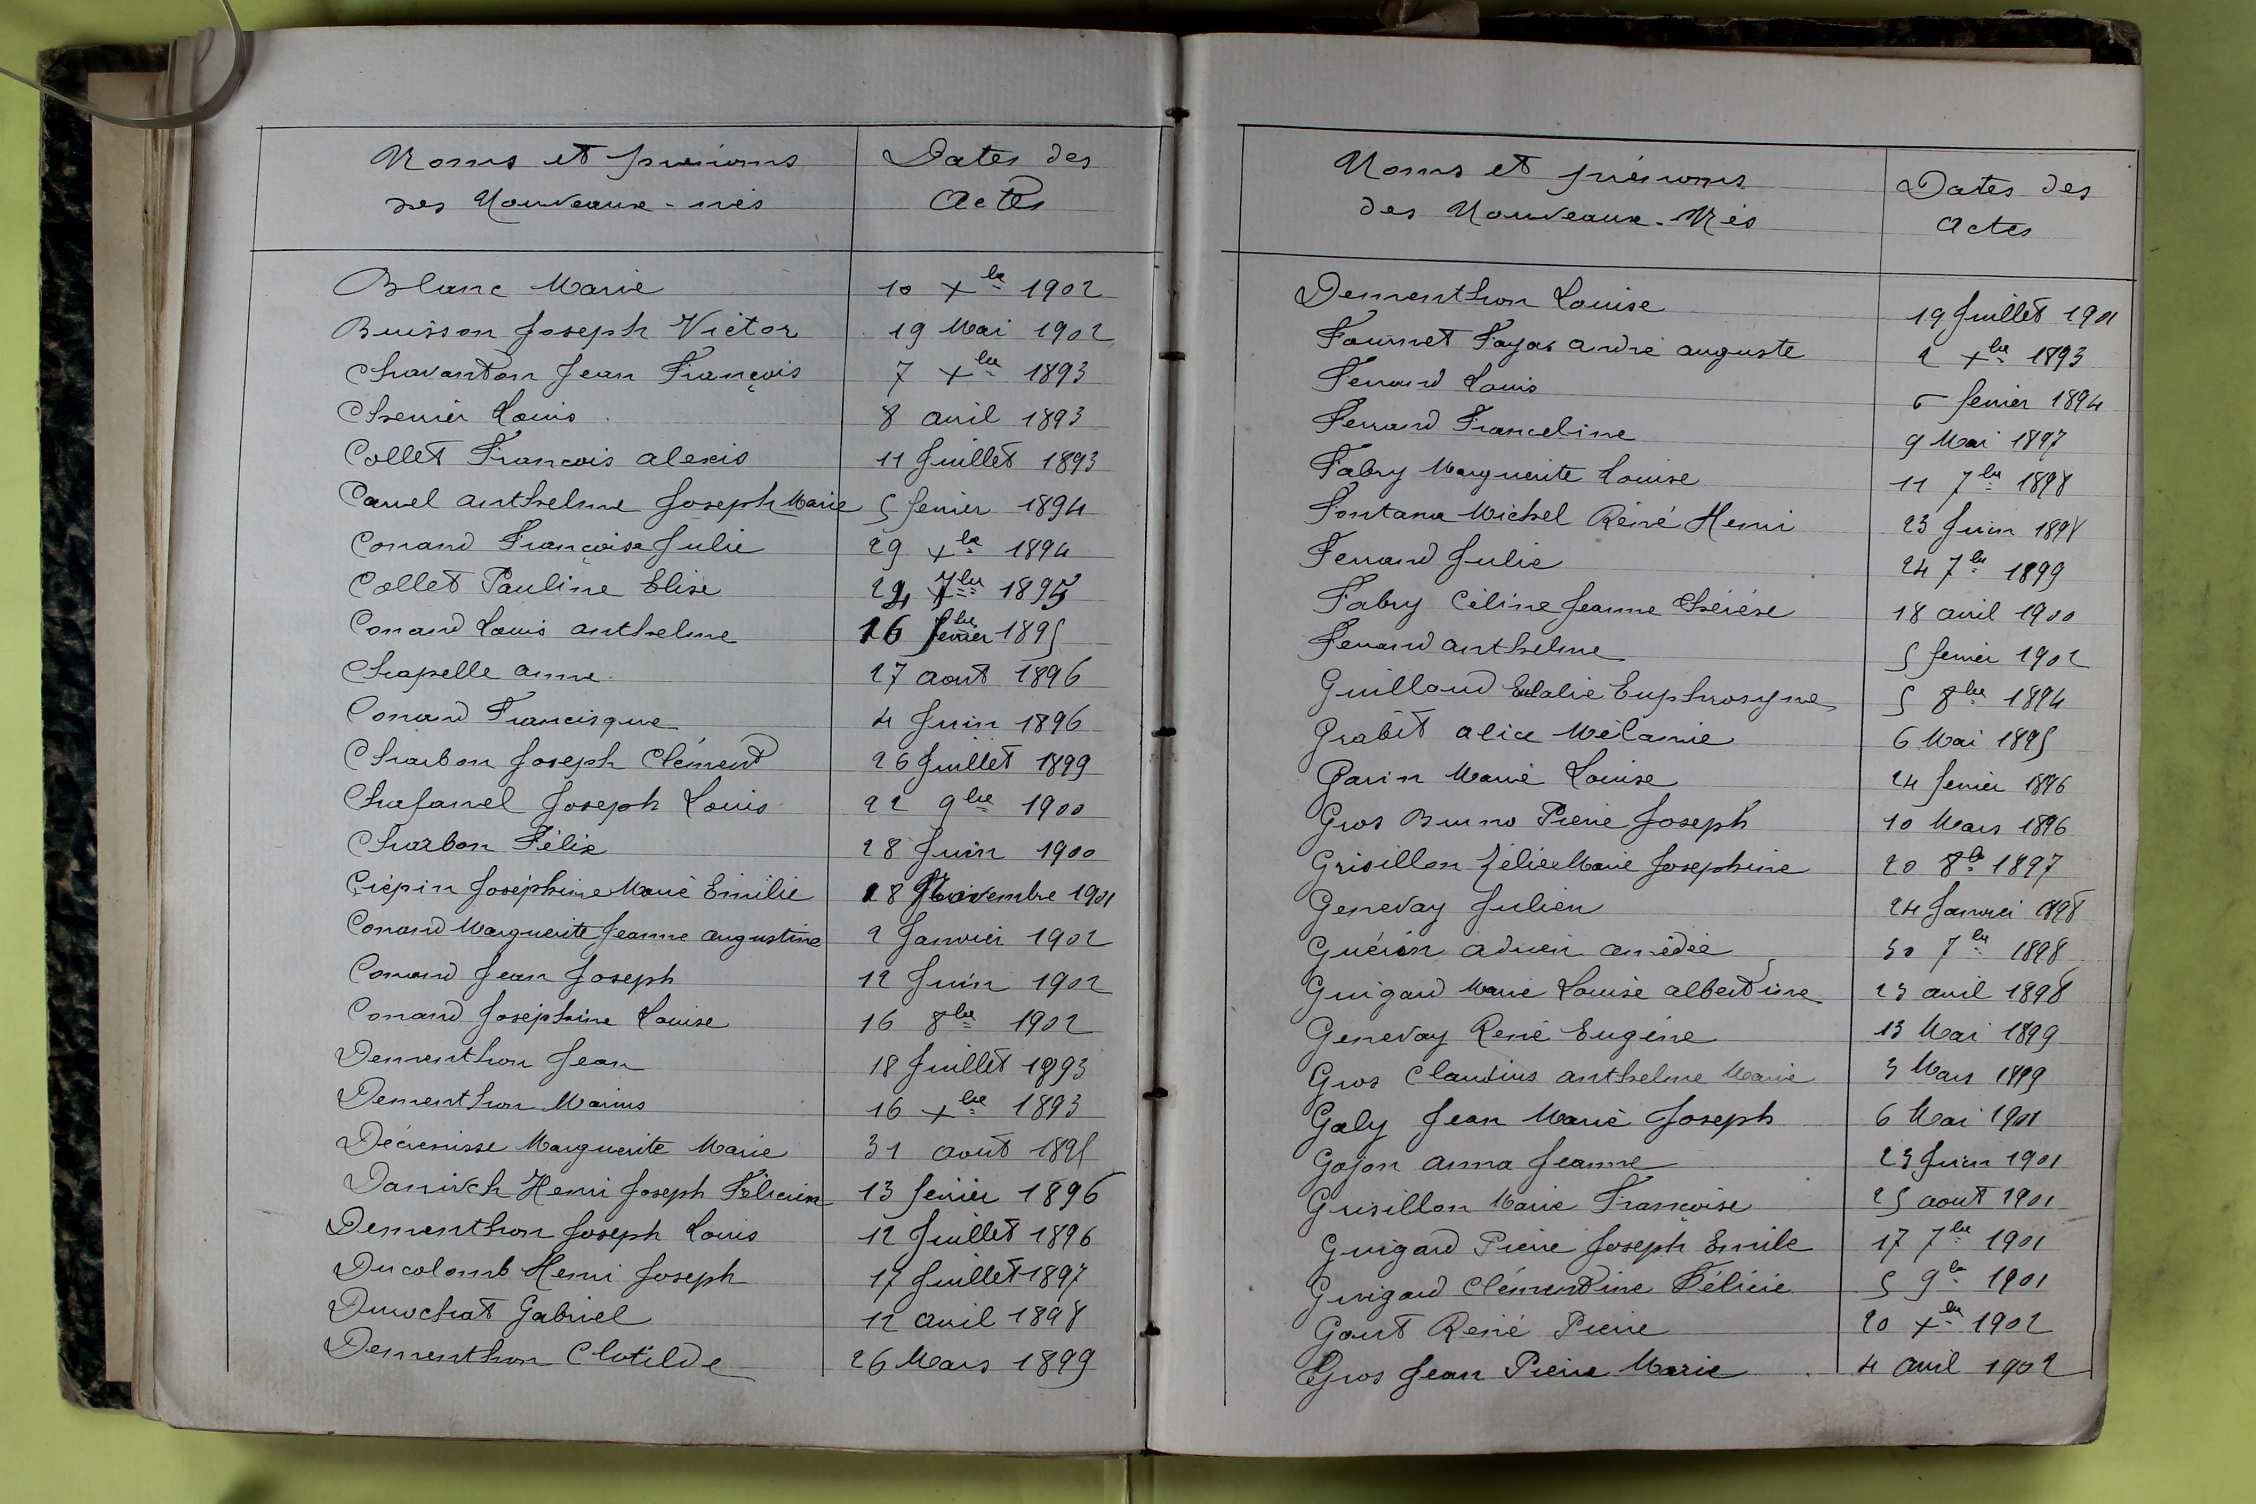 Noms et prénoms
des Nouveaux-nés
Dates des
Actes
Blanc Marie 10 Xbre 1902
Buisson Joseph Victor 19 Mai 1902
Chavanton Jean François 7 Xbre 1893
Chenier Louis 8 avril 1893
Collet François alexis 11 Juillet 1893
Carrel anthelme Joseph Marie 5 fevrier 1894
Conand Françoise Julie 29 Xbre 1894
Collet Pauline Elise 24 7bre 1895
Conand Louis anthelme 16 fevrier 1895
Chapelle anne 27 aout 1896
Conand Francisque 4 Juin 1896
Charbon Joseph Clément 26 Juillet 1899
Chafanel Joseph Louis 22 9bre 1900
Charbon Félix 28 Juin 1900
Crépin Joséphine Marie Emilie 18 Novembre 1901
Conand Marguerite Jeanne augustine 2 Janvier 1902
Conand Jean Joseph 12 Juin 1902
Conand Joséphine Louise 16 8bre 1902
Dementhon Jean 18 Juillet 1893
Dementhon Marius 16 Xbre 1893
Décrenisse Marguerite Marie 31 août 1895
Henri Joseph Félicien 13 fevrier 1896
Dementhon Joseph Louis 12 Juillet 1896
Ducolomb Henri Joseph 17 Juillet 1897
Durochat Gabriel 12 avril 1898
Dementhon Clotilde 26 Mars 1899
Noms et prénoms
des Nouveaux-Nés
Dates des
actes
Dementhon Louise 19 Juillet 1901
Fournet Fayas andré auguste 2 Xbre 1893
Ferrand Louis fevrier 1894
Ferrand Franceline 9 Mai 1897
Fabry Marguerite Louise 11 7bre 1898
Fontana Michel Réné Henri 23 Juin 1898
Ferrand Julie 24 7bre 1899
Fabry Céline Jeanne Thérèse 18 avril 1900
Ferrand anthelme 5 fevrier 1902
Guilland Eulalie Euphrosyne 5 8bre 1894
Grabit alice Mélanie 6 Mai 1895
Garin Marie Louise 24 fevrier 1896
Gros Bruno Pierre Joseph 10 Mars 1896
Grisillon Zélie Marie Josephine 20 8b 1897
Genevay Julien 24 Janvier 1898
Guérin adrien amédée 30 7bre 1898
Guigard Marie Louise albertine 23 avril 1898
Genevay René Eugène 13 Mai 1899
Gros Claudius anthelme Marie 3 Mars 1899
Galy Jean Marie Joseph 6 Mai 1901
Gojon anna Jeanne 23 Juin 1901
Grisillon Marie Françoise 25 aout 1901
Guigard Pierre Joseph Emile 17 7bre 1901
Guigard Clémentine Félicie 5 9b 1901
Gout René Pierre 20 Xbre 1902
Gros Jean Pierre Marie 4 avril 1902